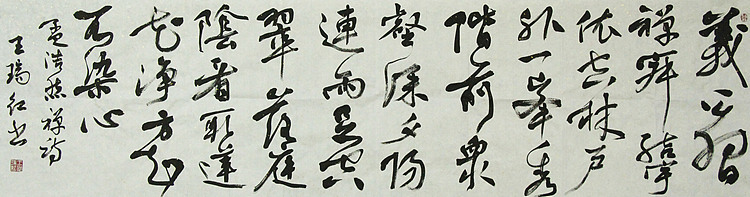 義公習
禪寂結宇
依空林户
外一峯秀
階前衆
壑深夕陽
連雨足空
翠落庭
陰看取蓮
花净方知
不染心
孟浩然禅诗
王瑞红书